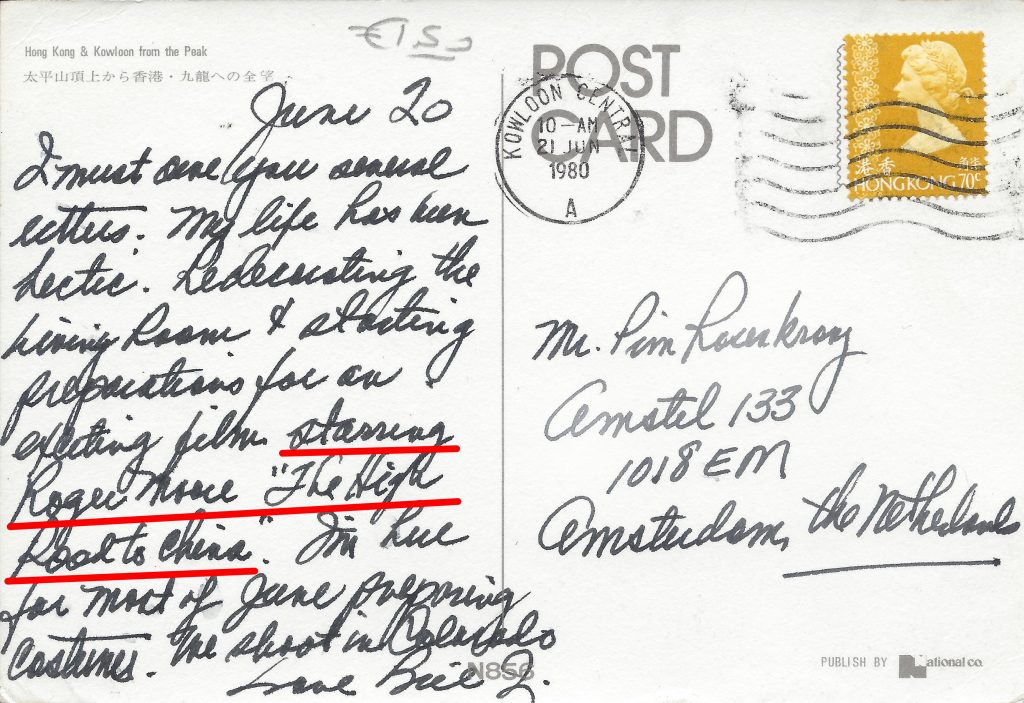 Hong Kong & Kowloon from the Peak
太平山頂上から香港・九龍への全望
€1,50
June 20
I must owe you several
letters. My life has been
hectic. Redecorating the
Living Room & starting
preparations for an
exciting film starring
Roger Moore "The High
Road to China". I'm here
for most of June preparing
costumes. We shoot in Colorado
Love Bill Z.
POST
CARD
KOWLOON CENTRAL
10-AM
21 JUN
1980
A
香港
HONG KONG 70c
Mr. Pim
Amstel 133
1018 EM
Amsterdam, the Netherlands
N856
PUBLISH BY National co.